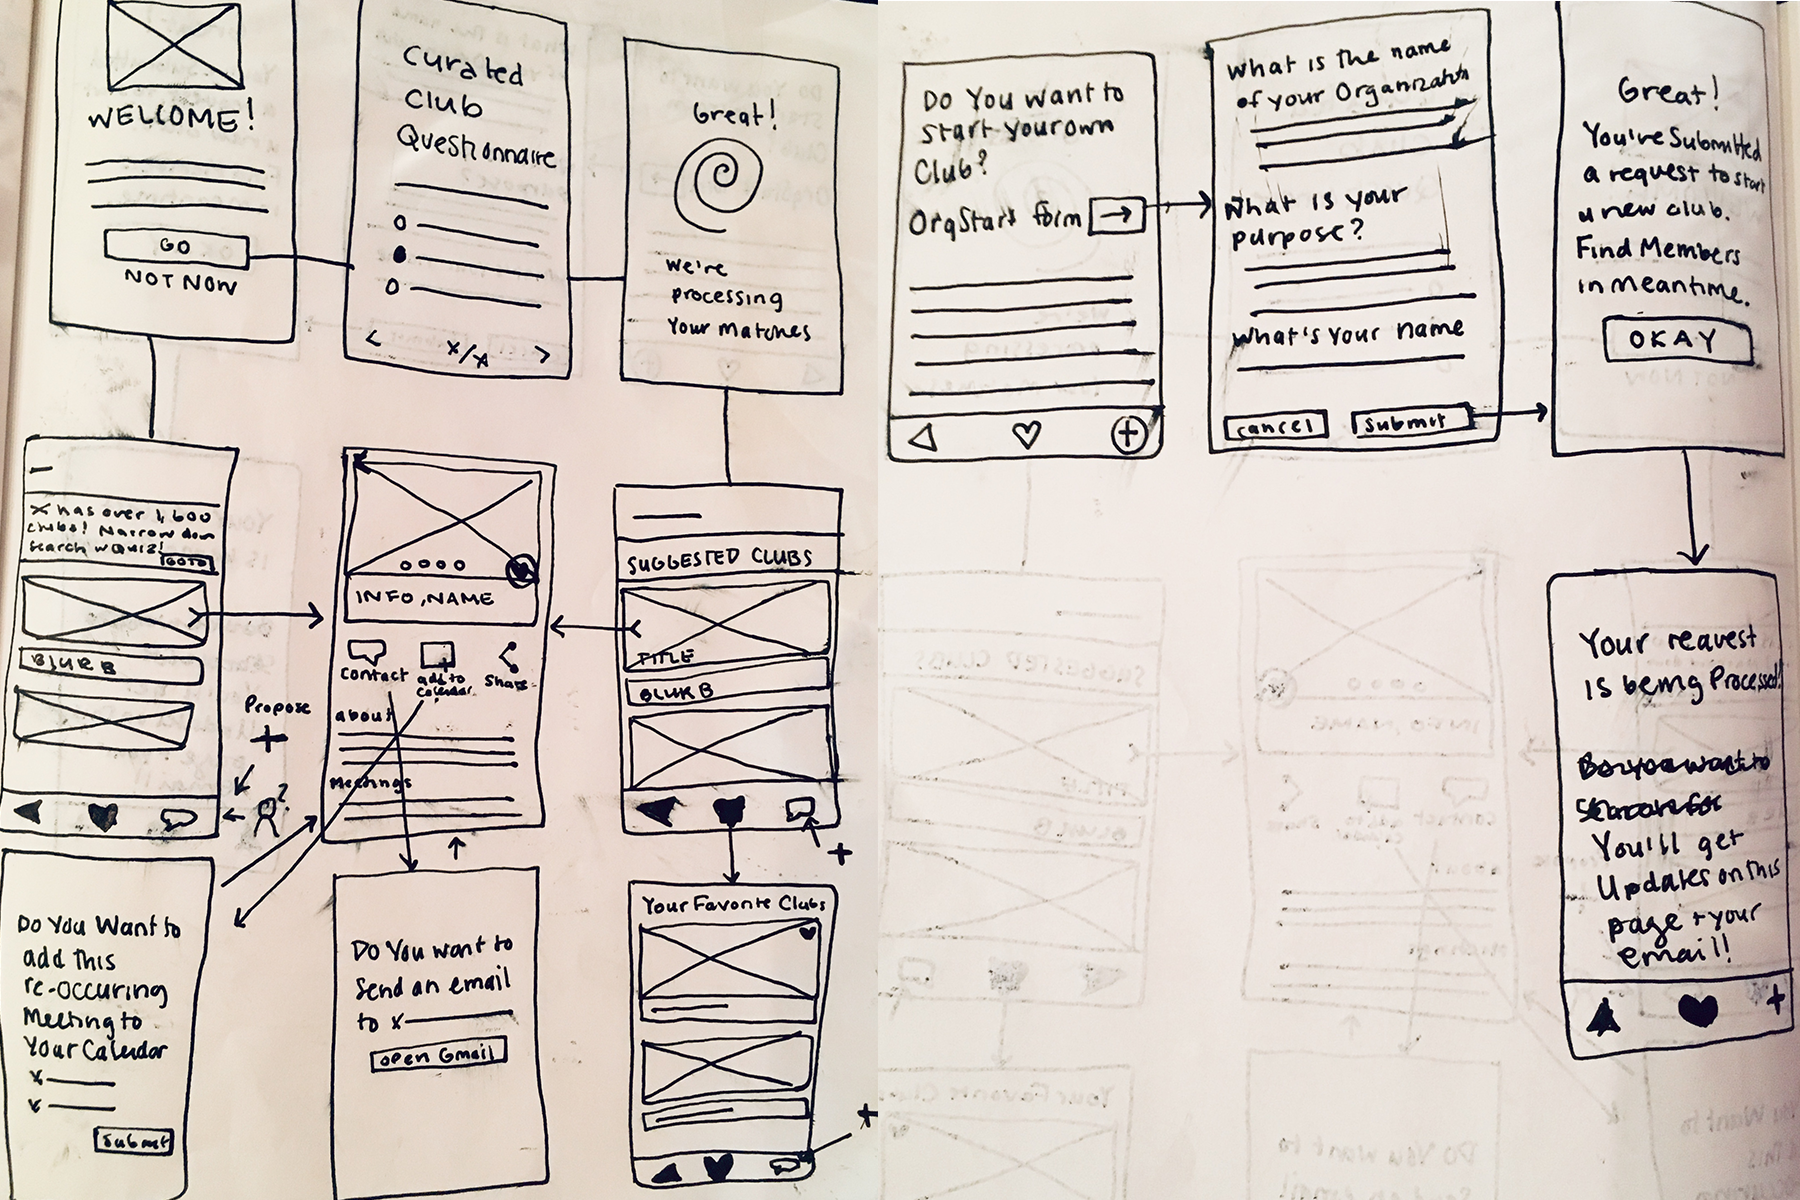 WELCOME!
GO
NOT NOW
Curated
Club
Questionnaire
< x/x >
Great!
We're
processing
Your Matches
X has over 1,600
clubs! Narrow down
search w Quiz!
GOTO
BLURB
Propose
+
?
INFO, NAME
contact
add to
calendar
Share
about
Meetings
SUGGESTED CLUBS
TITLE
BLURB
+
Do You Want to
add this
re-occuring
Meeting to
Your Calendar
x
x
Submit
Do You want to
Send an email
to x
open Gmail
Your Favorite Clubs
+
Do You want to
start your own
Club?
OrgStart form →
+
What is the name
of your Organization
What is your
purpose?
What's your name
cancel
Submit
Great!
You've Submitted
a request to start
a new club.
Find Members
in meantime.
OKAY
Your request
is being Processed!
Do you want to
You'll get
Updates on this
page + your
email!
+